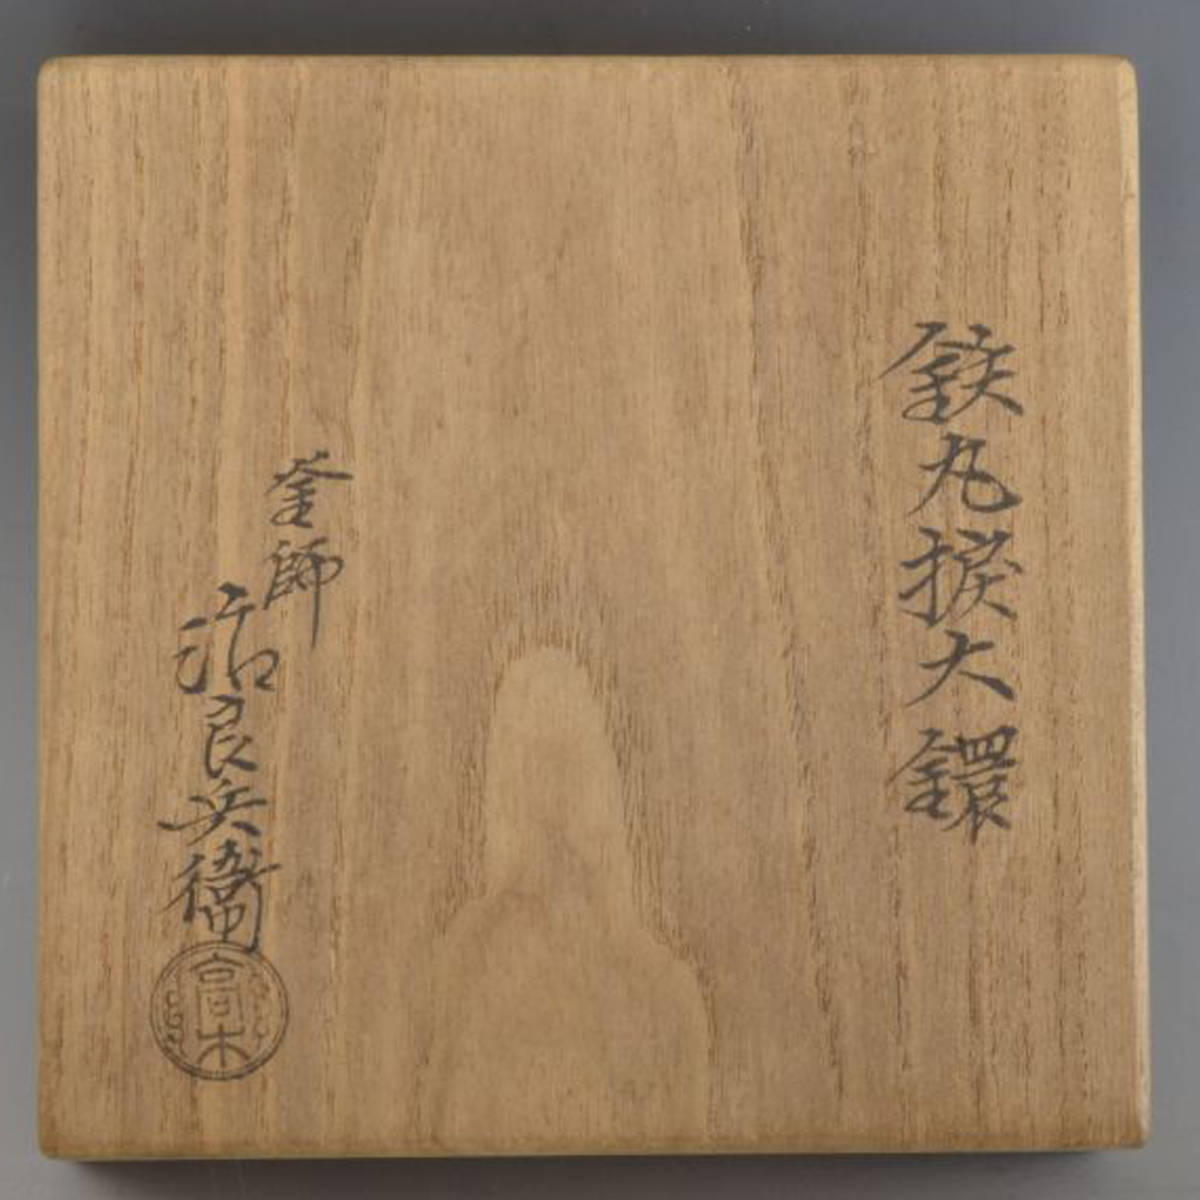 鉄丸捩大鐶
釜師
治良兵衛
高木